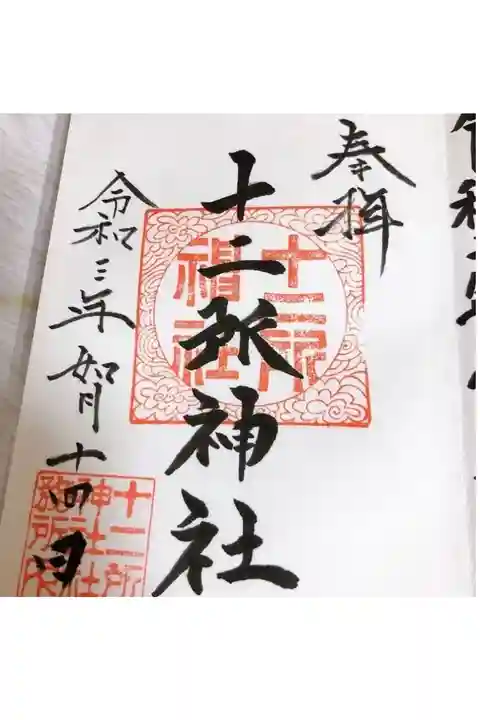 奉拝
十二所神社
令和三年如月十四日
十二所
神社
十二所
神社社
務所之